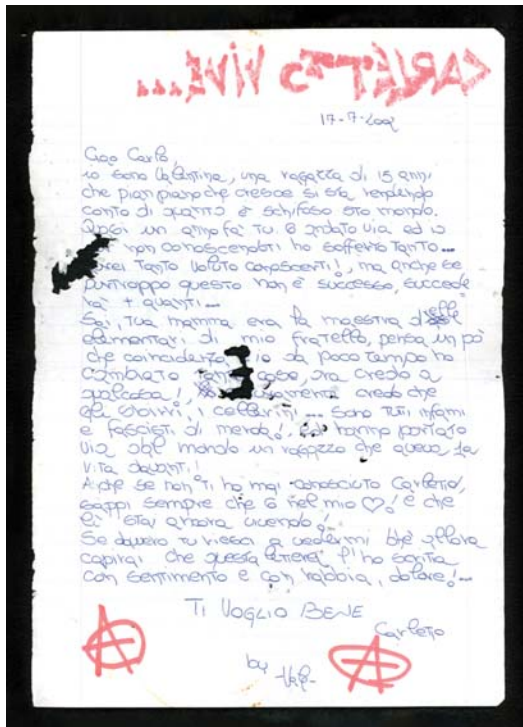 CARLETTO VIVE...
17-7-2002
Ciao Carlo,
io sono Valentina, una ragazza di 15 anni
che pian piano che cresce si sta rendendo
conto di quanto è schifoso sto mondo.
Quasi un anno fa tu 6 andato via ed io
non conoscendoti ho sofferto tanto...
Tanto voluto conoscerti!, ma anche se
purtroppo questo non è successo, succede
rà + avanti...
Sai, tua mamma era la maestra delle
elementari di mio fratello, pensa un pò
che coincidenza io da poco tempo ho
cambiato cose, ora credo a
qualcosa!, credo che
gli sbirri, i cellerini... sono tutti infami
e fascisti di merda!, hanno portato
via dal mondo un ragazzo che aveva la
vita davanti!
Anche se non ti ho mai conosciuto Carletto,
sappi sempre che 6 nel mio ♡! e che
lì stai ancora vivendo!
Se davvero tu riesci a vedermi bhè allora
capirai che questa lettera l'ho scritta
con sentimento e con rabbia, dolore!...
TI VOGLIO BENE
Carletto
by -Vale-